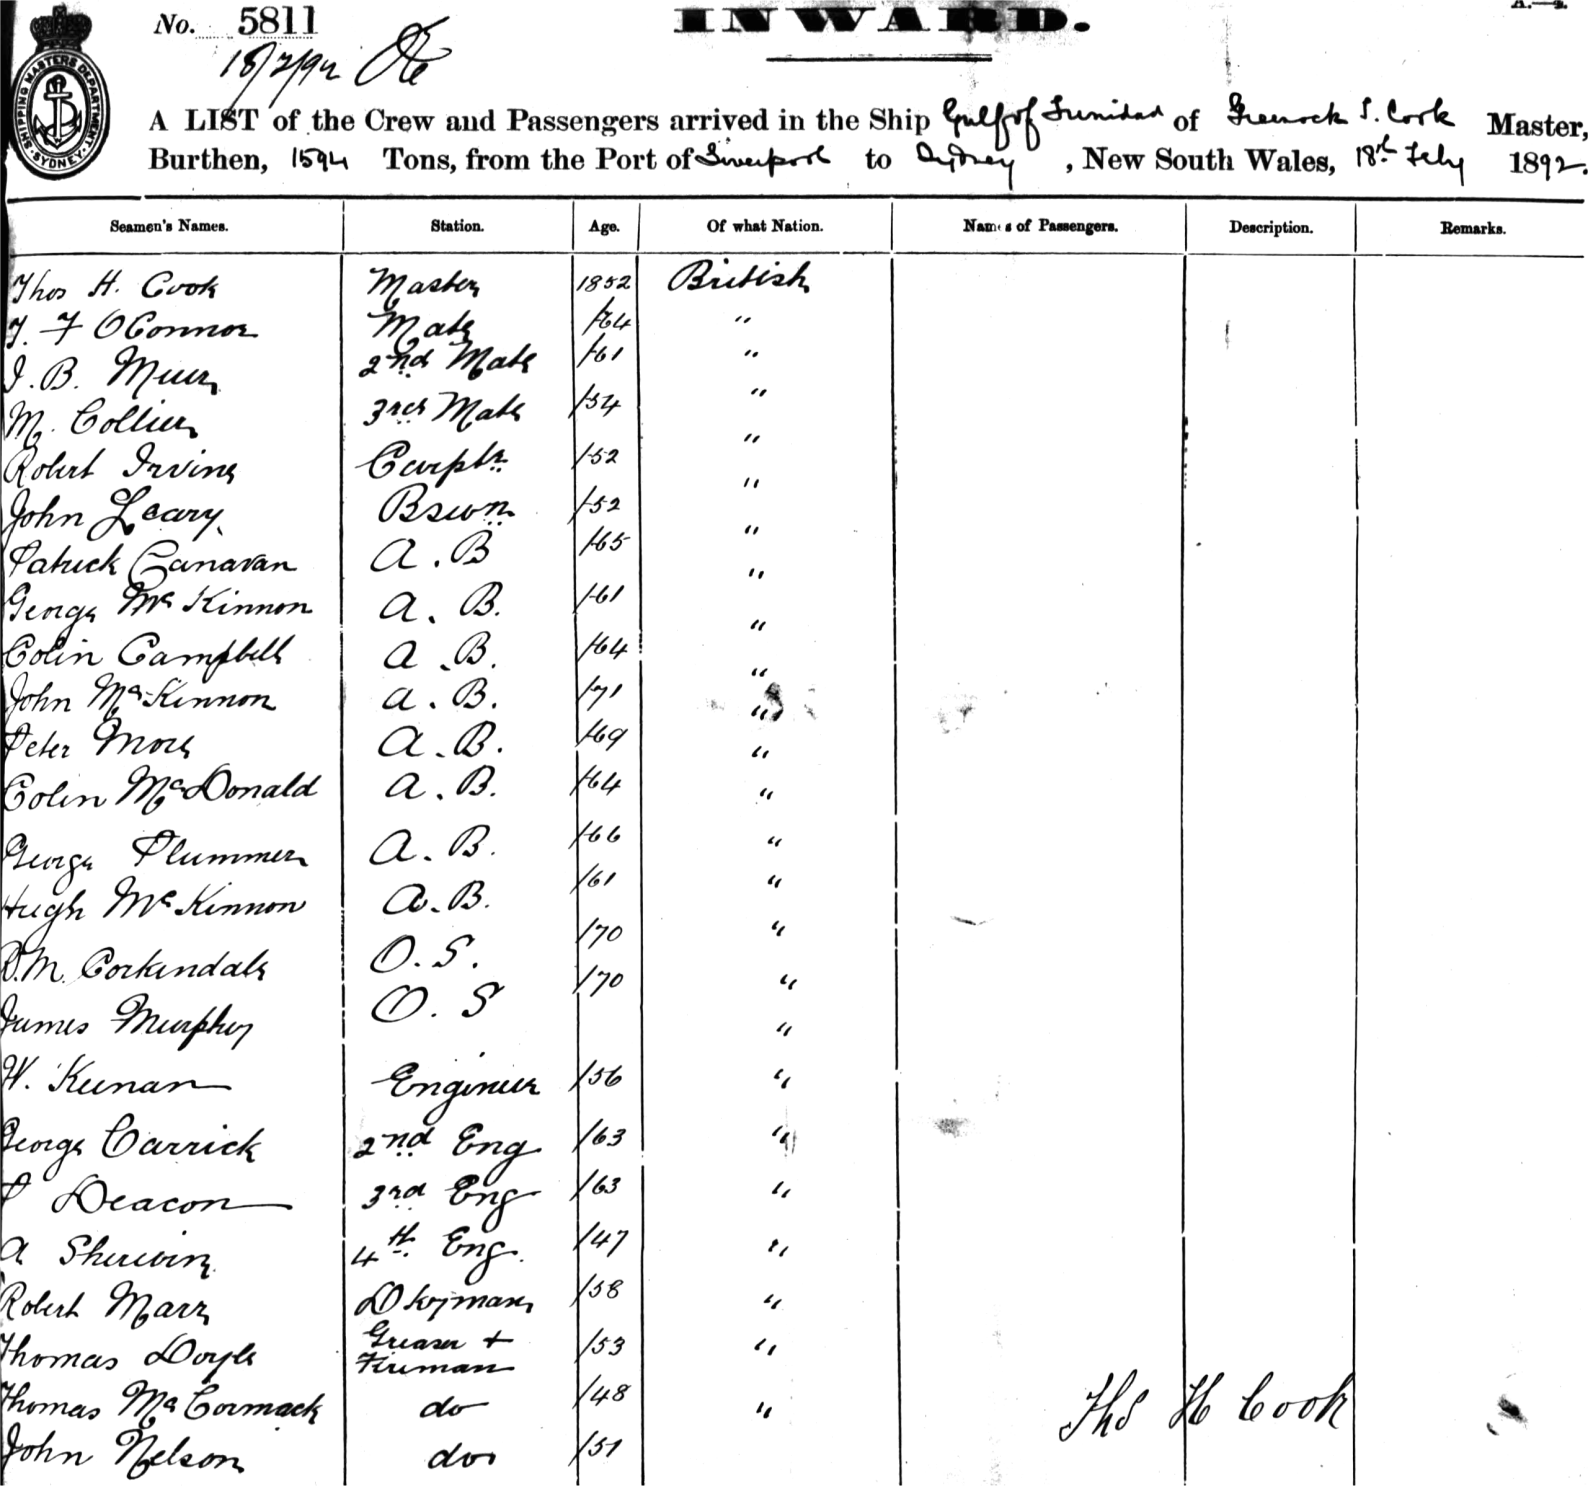 No. 5811
INWARD.
A.—2.
18/2/92
SHIPPING MASTERS DEPARTMENT
SYDNEY
A LIST of the Crew and Passengers arrived in the Ship Gulf of Trinidad of Greenock T. Cook Master,
Burthen, 1594 Tons, from the Port of Liverpool to Sydney, New South Wales, 18th Feby 1892.
Seamen's Names. Station. Age. Of what Nation. Names of Passengers. Description. Remarks.
Thos H. Cook Master 1852 British
T. F OConnor Mate /64 "
J. B. Muir 2nd Mate /61 "
M. Collier 3rd Mate /54 "
Robert Irving Carptr /52 "
John Leary Bswn /52 "
Patrick Canavan A. B /65 "
George McKinnon A. B. /61 "
Colin Campbell A. B. /64 "
John McKinnon A. B. /71 "
Peter More A. B. /69 "
Colin McDonald A. B. /64 "
George Plummer A. B. /66 "
Hugh McKinnon A. B. /61 "
D. M. Corkindale O. S. /70 "
James Murphy O. S /70 "
W. Keenan Engineer /56 "
George Carrick 2nd Eng /63 "
P Deacon 3rd Eng /63 "
A Sherwin 4th Eng. /47 "
Robert Marr Dkyman /58 "
Thomas Doyle Greaser + Fireman /53 "
Thomas McCormack do /48 "
Ths H Cook
John Nelson do /51